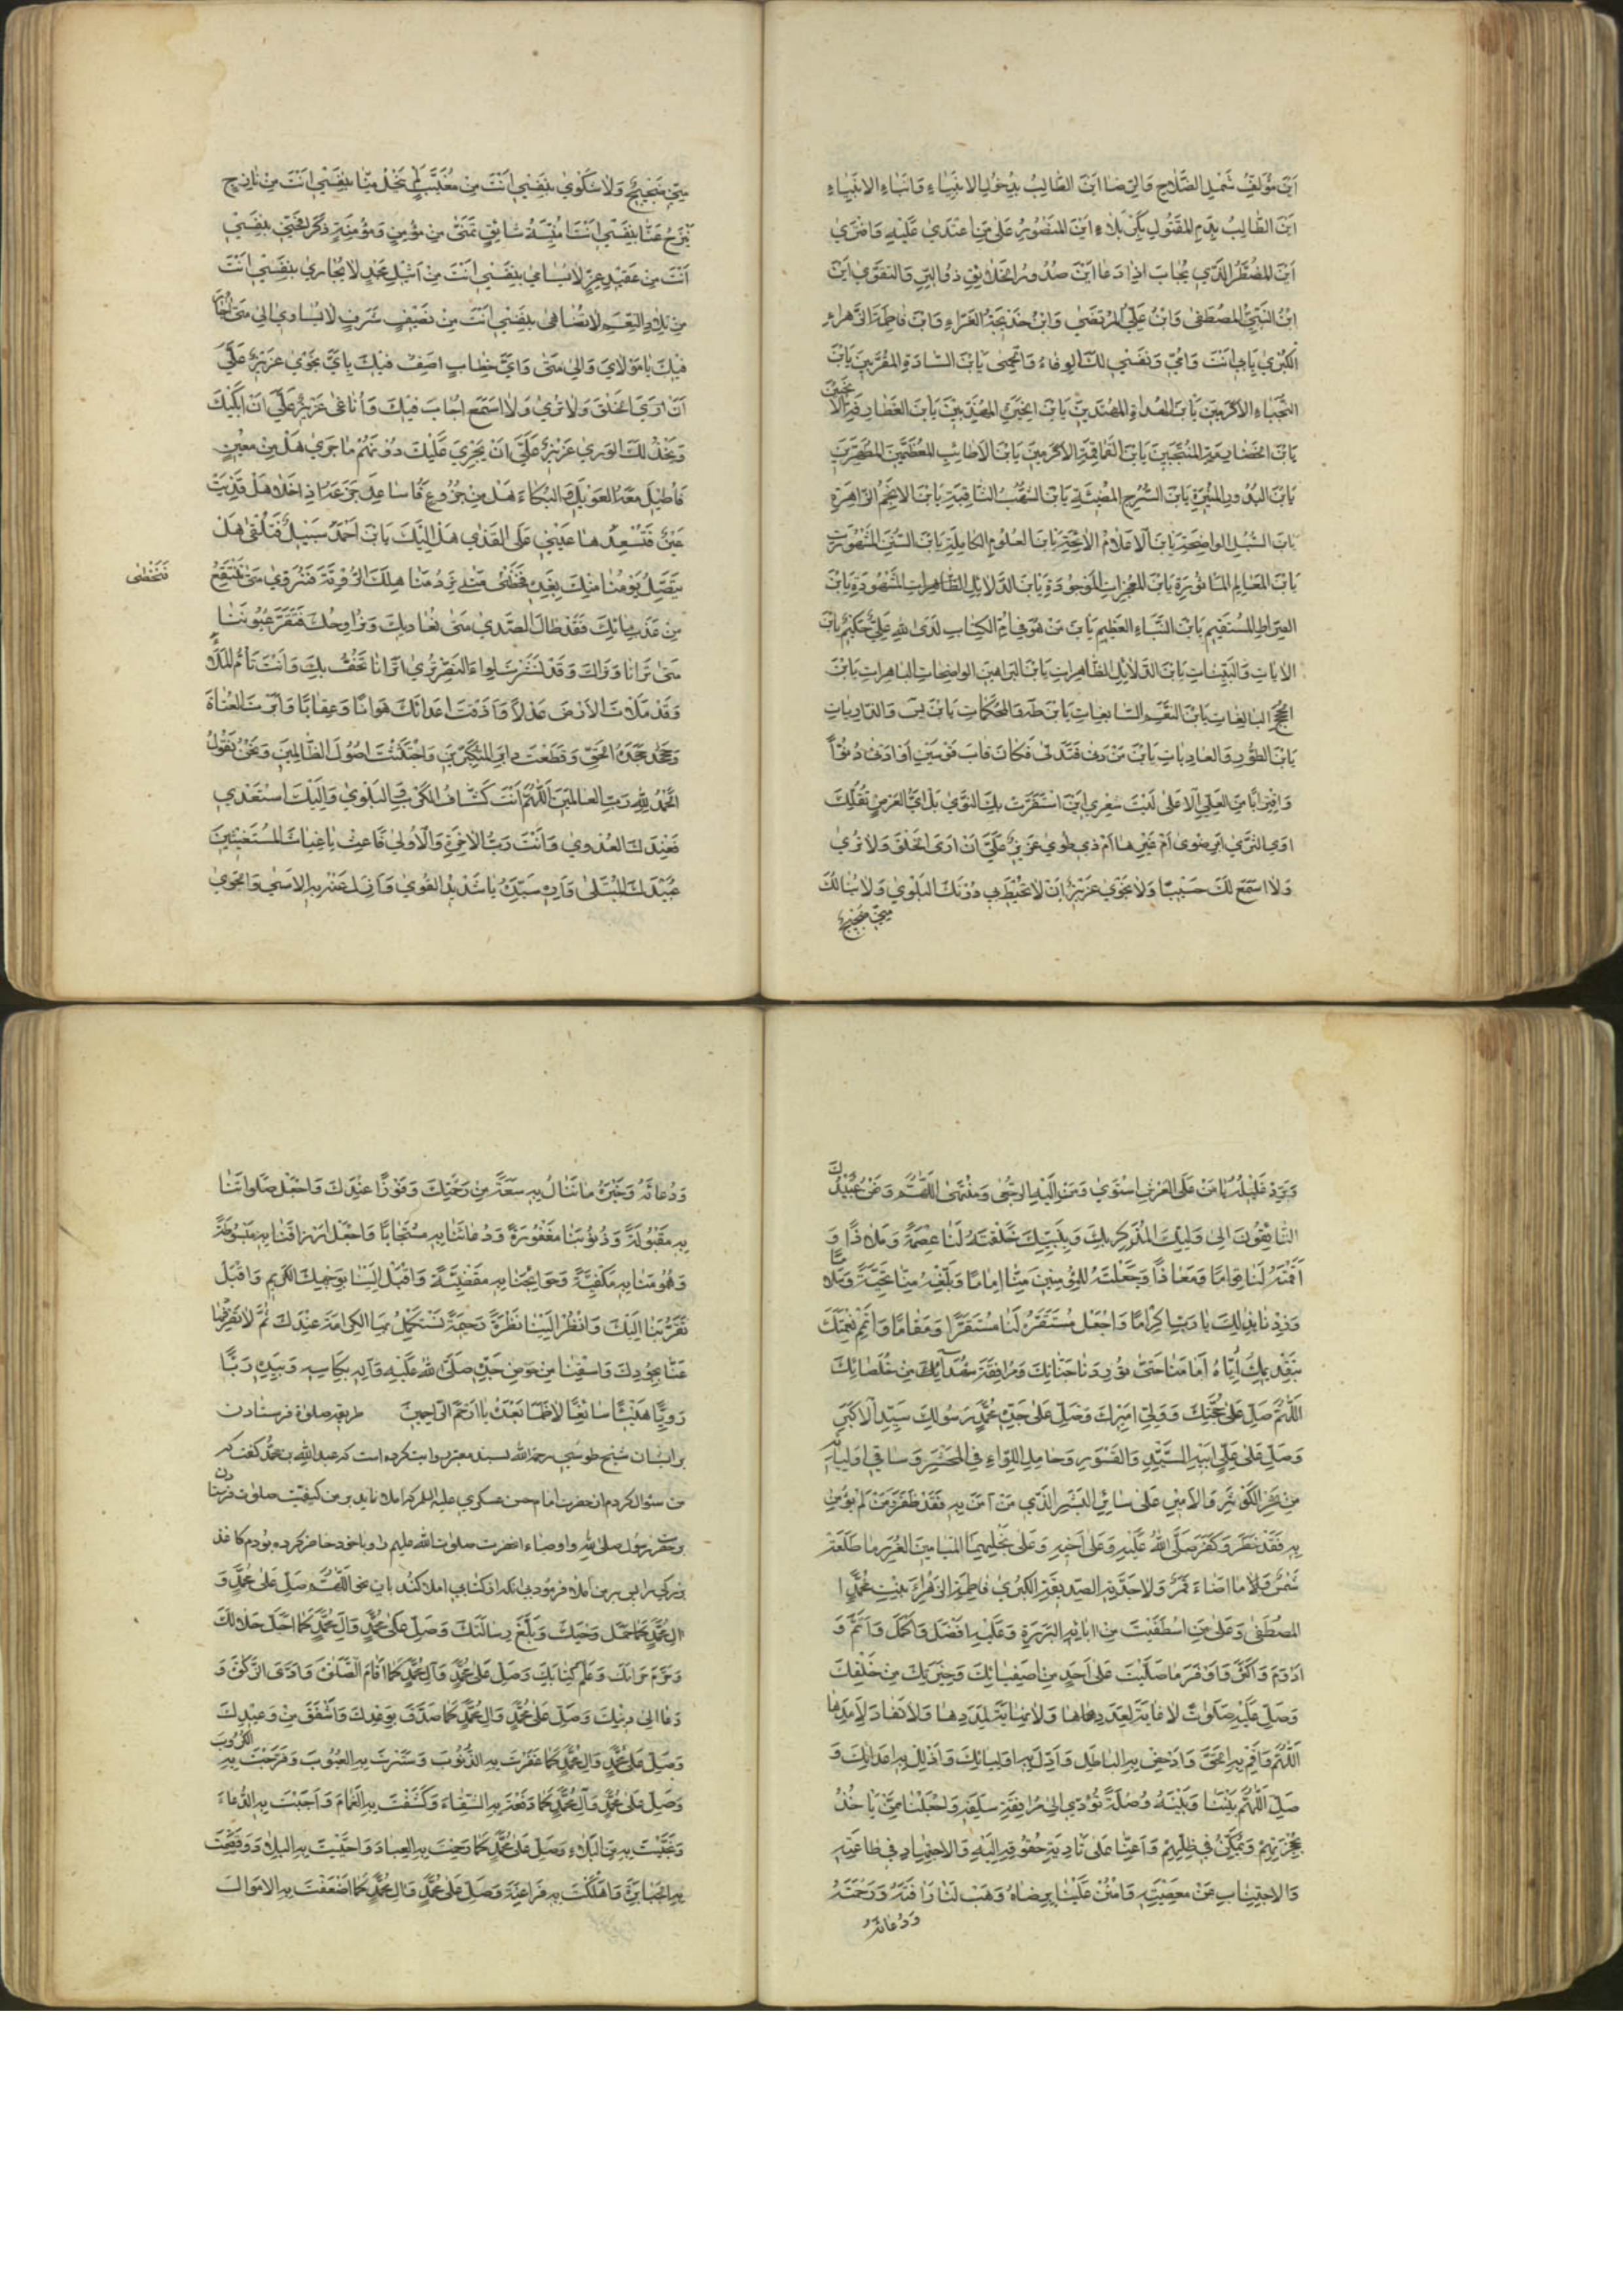 اَيْنَ مُؤَلِّفُ شَمْلِ الصَّلاحِ وَالرِّضا اَيْنَ الطّالِبُ بِذُحُولِ الاَنْبِياءِ وَاَبْناءِ الاَنْبِياءِ
اَيْنَ الطّالِبُ بِدَمِ المَقْتُولِ بِكَرْبَلاءَ اَيْنَ المَنْصُورُ عَلى مَنِ اعْتَدى عَلَيْهِ وَافْتَرى
اَيْنَ المُضْطَرُّ الَّذي يُجابُ اِذا دَعا اَيْنَ صَدْرُ الخَلائِقِ ذُوالبِرِّ وَالتَّقْوى اَيْنَ
ابْنُ النَّبِيِّ المُصْطَفى وَابْنُ عَلِيٍّ المُرْتَضى وَابْنُ خَديجَةَ الغَرّاءِ وَابْنُ فاطِمَةَ الزَّهراءِ
الكُبْرى بِاَبي اَنْتَ وَاُمّي وَنَفْسي لَكَ الوِقاءُ وَالحِمى يَابْنَ السّادَةِ المُقَرَّبينَ يَابْنَ
النُّجَباءِ الاَكْرَمينَ يَابْنَ الهُداةِ المُهْتَدينَ يَابْنَ الخِيَرَةِ المُهَذَّبينَ يَابْنَ الغَطارِفَةِ الاَنْجَبينَ
يَابْنَ الخَضارِمَةِ المُنْتَجَبينَ يَابْنَ القَماقِمَةِ الاَكْرَمينَ يَابْنَ الاَطائِبِ المُعَظَّمينَ المُطَهَّرينَ
يَابْنَ البُدُورِ المُنيرَةِ يَابْنَ السُّرُجِ المُضيئَةِ يَابْنَ الشُّهُبِ الثّاقِبَةِ يَابْنَ الاَنْجُمِ الزّاهِرَةِ
يَابْنَ السُّبُلِ الواضِحَةِ يَابْنَ الاَعْلامِ اللاّئِحَةِ يَابْنَ العُلُومِ الكامِلَةِ يَابْنَ السُّنَنِ المَشْهُورَةِ
يَابْنَ المَعالِمِ المَأثُورَةِ يَابْنَ المُعْجِزاتِ المَوْجُودَةِ يَابْنَ الدَّلائِلِ الظّاهِراتِ المَشْهُودَةِ يَابْنَ
الصِّراطِ المُسْتَقيمِ يَابْنَ النَّبَاءِ العَظيمِ يَابْنَ مَنْ هُوَ في اُمِّ الكِتابِ لَدَى اللهِ عَلِيٌّ حَكيمٌ يَابْنَ
الاياتِ وَالبَيِّناتِ يَابْنَ الدَّلائِلِ الظّاهِراتِ يَابْنَ البَراهينِ الواضِحاتِ الباهِراتِ يَابْنَ
الحُجَجِ البالِغاتِ يَابْنَ النِّعَمِ السّابِغاتِ يَابْنَ طه وَالمُحْكَماتِ يَابْنَ يس وَالذّارِياتِ
يَابْنَ الطُّورِ وَالعادِياتِ يَابْنَ مَنْ دَنى فَتَدَلّى فَكانَ قابَ قَوْسَيْنِ اَوْ اَدْنى دُنُوّاً
وَاقْتِراباً مِنَ العَلِيِّ الاَعْلى لَيْتَ شِعْري اَيْنَ اسْتَقَرَّتْ بِكَ النَّوى بَلْ اَيُّ اَرْضٍ تُقِلُّكَ
اَوِ الثَّرى اَبِرَضْوى اَمْ غَيْرِها اَمْ ذي طُوى عَزيزٌ عَلَيَّ اَنْ اَرَى الخَلْقَ وَلا تُرى
وَلا اَسْمَعُ لَكَ حَسيساً وَلا نَجْوى عَزيزٌ اَنْ لا تُحيطَ بي دُونَكَ البَلْوى وَلا يَنالُكَ
مِنّي ضَجيجٌ
مِنّي ضَجيجٌ وَلا شَكْوى بِنَفْسي اَنْتَ مِنْ مُغَيَّبٍ لَمْ يَخْلُ مِنّا بِنَفْسي اَنْتَ مِنْ نازِحٍ
يَنْزَحُ عَنّا بِنَفْسي اَنْتَ اُمْنِيَّةُ شائِقٍ تَمَنّى مِنْ مُؤْمِنٍ وَمُؤْمِنَةٍ ذَكَرا فَحَنّا بِنَفْسي
اَنْتَ مِنْ عَقيدِ عِزٍّ لا يُسامى بِنَفْسي اَنْتَ مِنْ اَثيلِ مَجْدٍ لا يُجارى بِنَفْسي اَنْتَ
مِنْ تِلادِ النِعَمِ لا تُضاهى بِنَفْسي اَنْتَ مِنْ نَصيفِ شَرَفٍ لا يُساوى اِلى مَتى اَحارُ
فيكَ يا مَوْلايَ وَاِلى مَتى وَاَيَّ خِطابٍ اَصِفُ فيكَ وَاَيَّ نَجْوى عَزيزٌ عَلَيَّ
اَنْ اَرَى الخَلْقَ وَلا تُرى وَلا اَسْمَعُ اُجابَ فيكَ وَاُناغى عَزيزٌ عَلَيَّ اَنْ اَبْكِيَكَ
وَيَخْذُلَكَ الوَرى عَزيزٌ عَلَيَّ اَنْ يَجْرِيَ عَلَيْكَ دُونَهُمْ ما جَرى هَلْ مِنْ مُعينٍ
فَاُطيلَ مَعَهُ العَويلَ وَالبُكاءَ هَلْ مِنْ جَزُوعٍ فَاُساعِدَ جَزَعَهُ اِذا خَلا هَلْ قَذِيَتْ
عَيْنٌ فَتُسْعِدُها عَيْني عَلَى القَذى هَلْ اِلَيْكَ يَابْنَ اَحْمَدَ سَبيلٌ فَتُلْقى هَلْ
يَتَّصِلُ يَوْمُنا مِنْكَ بِغَدِهِ فَنَحْظى مَتى نَرِدُ مَناهِلَكَ الرَّوِيَّةَ فَنَرْوى مَتى نَنْتَقِعُ
فَنَحْظى
مِنْ عَذْبِ مائِكَ فَقَدْ طالَ الصَّدى مَتى نُغاديكَ وَنُراوِحُكَ فَتَقَرَّ عُيُونُنا
مَتى تَرانا وَنَراكَ وَقَدْ نَشَرْتَ لِواءَ النَّصْرِ تُرى اَتَرانا نَحُفُّ بِكَ وَاَنْتَ تَاُمُّ المَلَأَ
وَقَدْ مَلَاْتَ الاَرْضَ عَدْلاً وَاَذَقْتَ اَعْدائَكَ هَواناً وَعِقاباً وَاَبَرْتَ العُتاةَ
وَجَحَدَةَ الحَقِّ وَقَطَعْتَ دابِرَ المُتَكَبِّرينَ وَاجْتَثَثْتَ اُصُولَ الظّالِمينَ وَنَحْنُ نَقُولُ
الحَمْدُ للهِ رَبِّ العالَمينَ اَللّهُمَّ اَنْتَ كَشّافُ الكُرَبِ وَالبَلْوى وَاِلَيْكَ اَسْتَعْدى
فَعِنْدَكَ العَدْوى وَاَنْتَ رَبُّ الاخِرَةِ وَالاُولى فَاَغِثْ يا غِياثَ المُسْتَغيثينَ
عُبَيْدَكَ المُبْتَلى وَاَرِهِ سَيِّدَهُ يا شَديدَ القُوى وَاَزِلْ عَنْهُ بِهِ الاَسى وَالجَوى
وَبَرِّدْ غَليلَهُ يا مَنْ عَلَى العَرْشِ اسْتَوى وَمَنْ اِلَيْهِ الرُّجْعى وَالمُنْتَهى اَللّهُمَّ وَنَحْنُ عَبيدُكَ
التّائِقُونَ اِلى وَلِيِّكَ المُذَكِّرِ بِكَ وَبِنَبِيِّكَ خَلَقْتَهُ لَنا عِصْمَةً وَمَلاذاً وَ
اَقَمْتَهُ لَنا قِواماً وَمَعاذاً وَجَعَلْتَهُ لِلمُؤْمِنينَ مِنّا اِماماً فَبَلِّغْهُ مِنّا تَحِيَّةً وَسَلاماً
وَزِدْنا بِذلِكَ يا رَبِّ اِكْراماً وَاجْعَلْ مُسْتَقَرَّهُ لَنا مُسْتَقَرّاً وَمُقاماً وَاَتْمِمْ نِعْمَتَكَ
بِتَقْديمِكَ اِيّاهُ اَمامَنا حَتّى تُورِدَنا جَنانَكَ وَمُرافَقَةَ الشُّهَداءِ مِنْ خُلَصائِكَ
اَللّهُمَّ صَلِّ عَلى حُجَّتِكَ وَوَلِيِّ اَمْرِكَ وَصَلِّ عَلى جَدِّهِ مُحَمَّدٍ رَسُولِكَ السَّيِّدِ الاَكْبَرِ
وَصَلِّ عَلى عَلِيٍّ اَبيهِ السَّيِّدِ وَالقَسْوَرِ وَحامِلِ اللِّواءِ فِي المَحْشَرِ وَساقي اَوْلِيائِهِ
مِنْ نَهَرِ الكَوْثَرِ وَالاَميرِ عَلى سائِرِ البَشَرِ الَّذي مَنْ آمَنَ بِهِ فَقَدْ ظَفَرَ وَمَنْ لَمْ يُؤْمِنْ
بِهِ فَقَدْ خَطَرَ وَكَفَرَ صَلَّى اللهُ عَلَيْهِ وَعَلى اَخيهِ وَعَلى نَجْلِهِمَا المَيامينَ الغُرَرِ ما طَلَعَتْ
شَمْسٌ وَما اَضاءَ قَمَرٌ وَعَلى جَدَّتِهِ الصِّدّيقَةِ الكُبْرى فاطِمَةَ الزَّهراءِ بِنْتِ مُحَمَّدٍ ا
المُصْطَفى وَعَلى مَنِ اصْطَفَيْتَ مِنْ ابائِهِ البَرَرَةِ وَعَلَيْهِ اَفْضَلَ وَاَكْمَلَ وَاَتَمَّ وَ
اَدْوَمَ وَاَكْثَرَ وَاَوْفَرَ ما صَلَّيْتَ عَلى اَحَدٍ مِنْ اَصْفِيائِكَ وَخِيَرَتِكَ مِنْ خَلْقِكَ
وَصَلِّ عَلَيْهِ صَلوةً لا غايَةَ لِعَدَدِها وَلا نِهايَةَ لِمَدَدِها وَلا نَفادَ لِاَمَدِها
اَللّهُمَّ وَاَقِمْ بِهِ الحَقَّ وَاَدْحِضْ بِهِ الباطِلَ وَاَدِلْ بِهِ اَوْلِيائَكَ وَاَذْلِلْ بِهِ اَعْدائَكَ وَ
صَلِ اللّهُمَّ بَيْنَنا وَبَيْنَهُ وُصْلَةً تُؤَدّي اِلى مُرافَقَةِ سَلَفِهِ وَاجْعَلْنا مِمَّنْ يَاْخُذُ
بِحُجْزَتِهِمْ وَيَمْكُثُ في ظِلِّهِمْ وَاَعِنّا عَلى تَأدِيَةِ حُقُوقِهِ اِلَيْهِ وَالاِجْتِهادِ في طاعَتِهِ
وَالاِجْتِنابِ عَنْ مَعْصِيَتِهِ وَامْنُنْ عَلَيْنا بِرِضاهُ وَهَبْ لَنا رَاْفَتَهُ وَرَحْمَتَهُ
وَدُعائَهُ
وَدُعائَهُ وَخَيْرَهُ ما نَنالُ بِهِ سَعَةً مِنْ رَحْمَتِكَ وَفَوْزاً عِنْدَكَ وَاجْعَلْ صَلَواتَنا
بِهِ مَقْبُولَةً وَذُنُوبَنا بِهِ مَغْفُورَةً وَدُعائَنا بِهِ مُسْتَجاباً وَاجْعَلْ اَرْزاقَنا بِهِ مَبْسُوطَةً
وَهُمُومَنا بِهِ مَكْفِيَّةً وَحَوائِجَنا بِهِ مَقْضِيَّةً وَاَقْبِلْ اِلَيْنا بِوَجْهِكَ الكَريمِ وَاقْبَلْ
تَقَرُّبَنا اِلَيْكَ وَانْظُرْ اِلَيْنا نَظْرَةً رَحيمَةً نَسْتَكْمِلُ بِهَا الكَرامَةَ عِنْدَكَ ثُمَّ لا تَصْرِفْها
عَنّا بِجُودِكَ وَاسْقِنا مِنْ حَوْضِ جَدِّهِ صَلَّى اللهُ عَلَيْهِ وَآلِهِ بِكَاسِهِ وَبِيَدِهِ رَيّاً
رَوِيّاً هَنيئاً سائِغاً لا ظَمَأَ بَعْدَهُ يا اَرْحَمَ الرّاحِمينَ طريقه صلوة فرستادن
بر ايشان شيخ طوسي رحمة الله بسند معتبر روايت كرده است كه عبدالله بن محمد گفت كه
من سئوال كردم از حضرت امام حسن عسكري عليه السلام كه املا نمايد بر من كيفيت صلوات فرستادن
بر حضرت رسول صلى الله و اوصياء انحضرت صلوات الله عليهم را و با خود حاضر كرده بودم كاغذ
بزركي را پس بر من املاء فرمود بي آنكه از كتابي املا كند باين نحو اَللّهُمَّ صَلِّ عَلى مُحَمَّدٍ وَ
الِ مُحَمَّدٍ كَما حَمَلَ وَحْيَكَ وَبَلَّغَ رِسالاتِكَ وَصَلِّ عَلى مُحَمَّدٍ وَآلِ مُحَمَّدٍ كَما اَحَلَّ حَلالَكَ
وَحَرَّمَ حَرامَكَ وَعَلَّمَ كِتابَكَ وَصَلِّ عَلى مُحَمَّدٍ وَآلِ مُحَمَّدٍ كَما اَقامَ الصَّلوةَ وَادَى الزَّكوةَ وَ
دَعا اِلى دينِكَ وَصَلِّ عَلى مُحَمَّدٍ وَالِ مُحَمَّدٍ كَما صَدَّقَ بِوَعْدِكَ وَاَشْفَقَ مِنْ وَعيدِكَ
وَصَلِّ عَلى مُحَمَّدٍ وَالِ مُحَمَّدٍ كَما غَفَرْتَ بِهِ الذُّنُوبَ وَسَتَرْتَ بِهِ العُيُوبَ وَفَرَّجْتَ بِهِ الكُرُوبَ
وَصَلِّ عَلى مُحَمَّدٍ وَآلِ مُحَمَّدٍ كَما دَفَعْتَ بِهِ الشَّقاءَ وَكَشَفْتَ بِهِ الغَمّاءَ وَاَجَبْتَ بِهِ الدُّعاءَ
وَنَجَّيْتَ بِهِ مِنَ البَلاءِ وَصَلِّ عَلى مُحَمَّدٍ كَما رَحِمْتَ بِهِ العِبادَ وَاَحْيَيْتَ بِهِ البِلادَ وَقَصَمْتَ
بِهِ الجَبابِرَةَ وَاَهْلَكْتَ بِهِ فَراعِنَةَ وَصَلِّ عَلى مُحَمَّدٍ وَآلِ مُحَمَّدٍ كَما اَضْعَفْتَ بِهِ الاَمْوالَ